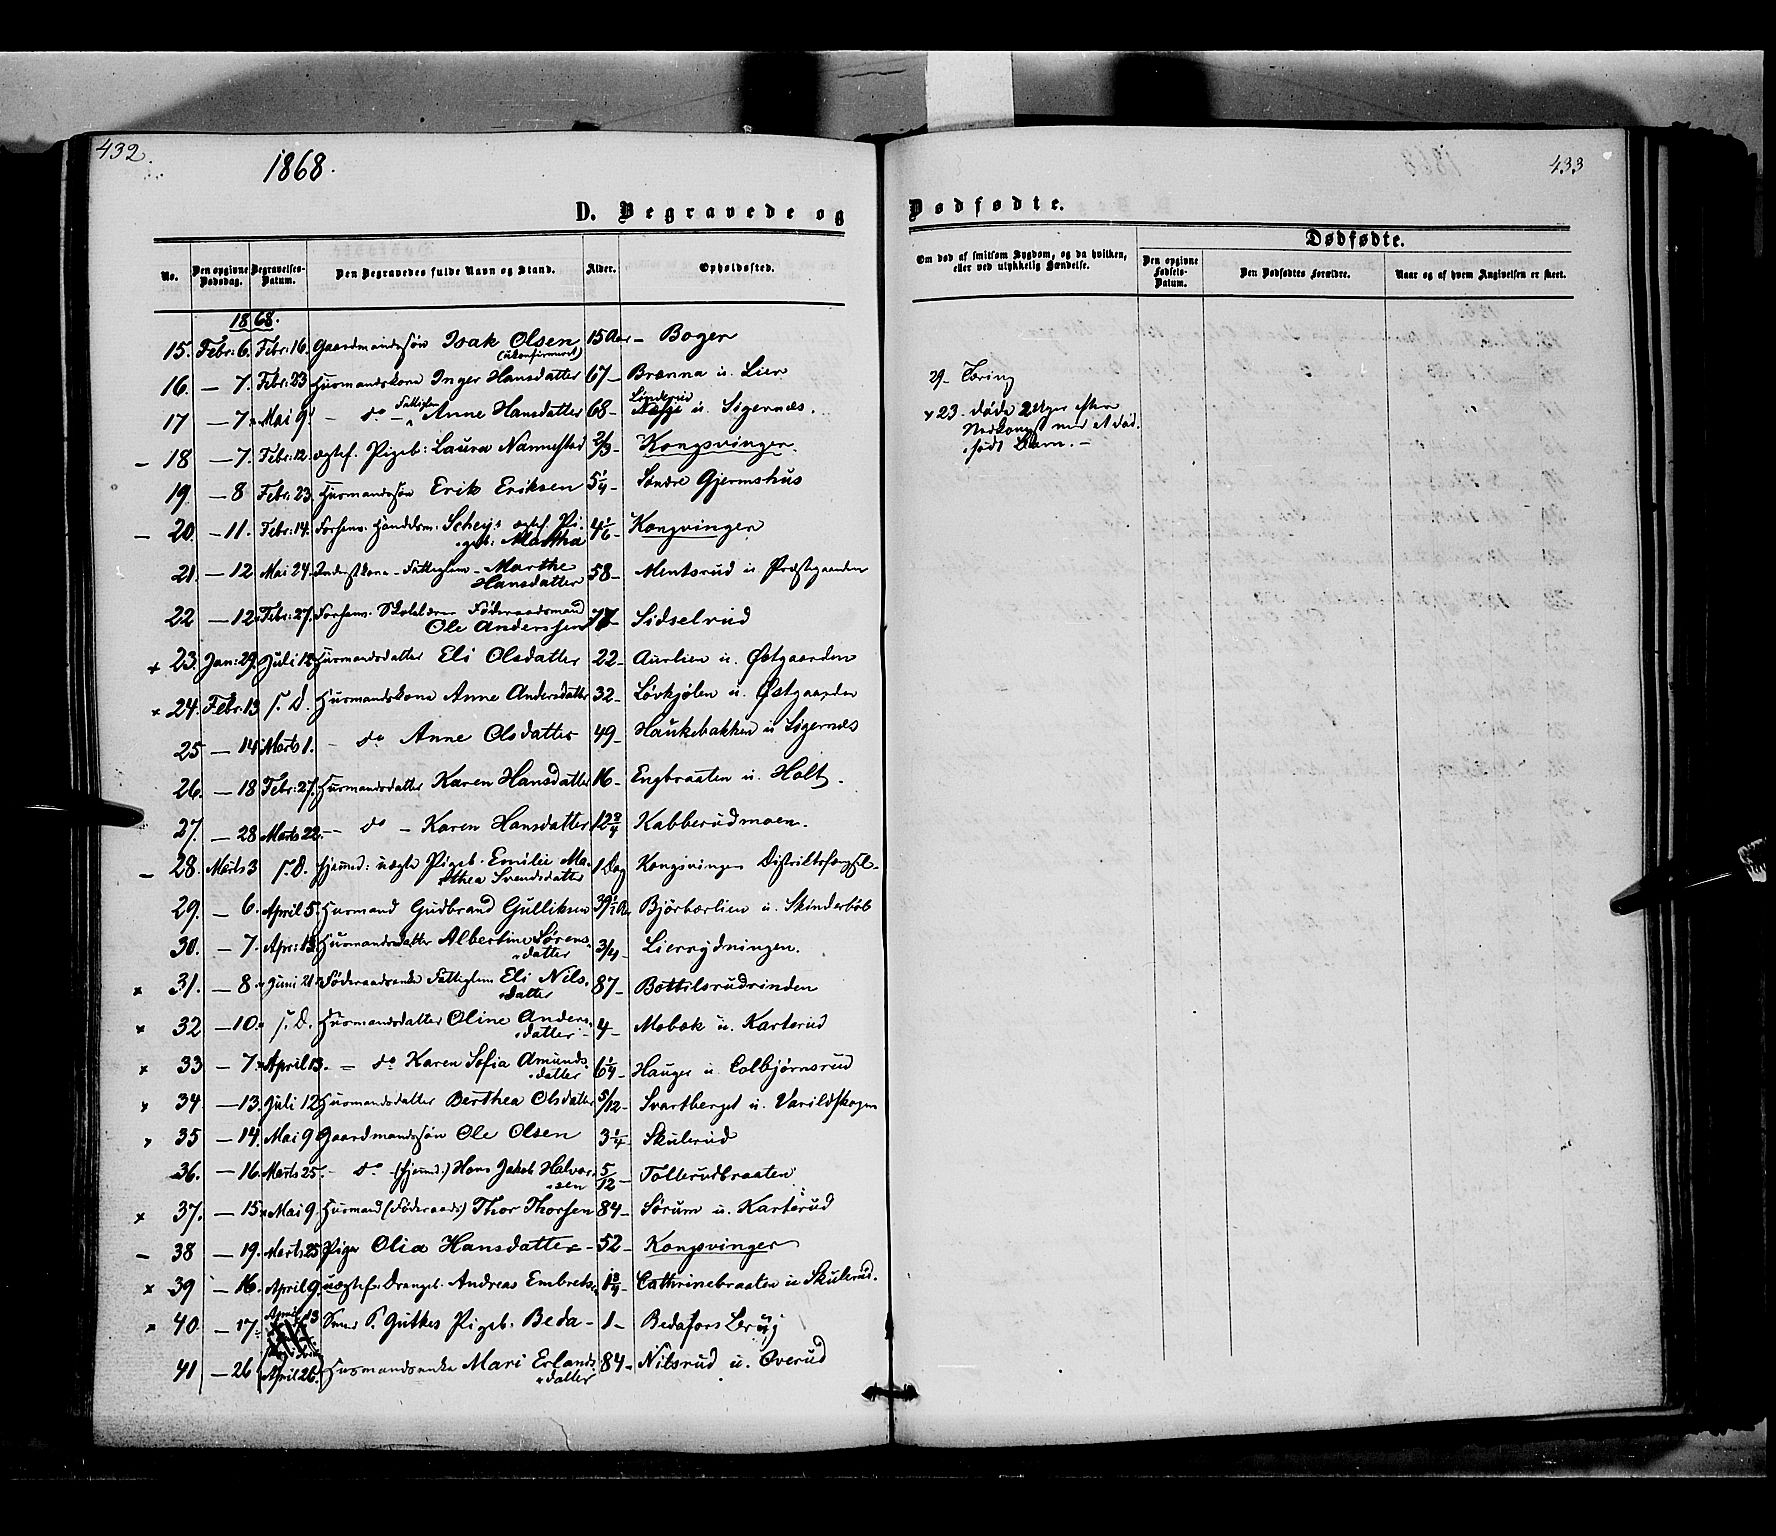 432.
1868.
D. Begravede og
No. Den opgivne Dødsdag. Begravelses-Datum. Den Begravedes fulde Navn og Stand. Alder. Opholdssted.
1868.
15. Febr: 6. Febr: 16. Gaardmandssøn Isak Olsen (ukonfirmeret) 15 Aar – Boger
16. – 7. Febr: 23 Husmandskone Inger Hansdatter 67 – Brænna u. Lier
17 – 7. Mai 9. – do – Fattiglem Anne Hansdatter 68 – Linderud u. Sigernæs.
– 18 – 7. Febr: 12. ægtef. Pigeb: Laura Nannestad 2/3 – Kongsvinger.
19. – 8 Febr. 23. Husmandssøn Erik Eriksen 5 1/4 – Søndre Gjermshus
– 20. – 11. Febr: 14. Forhenv. Handelsm: Scheys ægtef. Pi-
geb: Martha 4 1/6 – Kongvinger
21. – 12 Mai 24. Inderstkone – Fattiglem – Marthe
Hansdatter 58 – Mentsrud u. Præstgaarden
22 – 12. Febr: 27. Forhenv. Skolelærer Föderaadsmand
Ole Anderssen 77 – Sidselrud
+ 23. Jan: 29. Juli 12. Husmandsdatter Eli Olsdatter 22 – Aurlien u. Østgaarden
× 24. Febr. 13 s. D. Husmandskone Anne Andersdatter 32 – Løvhjølen u. Østgaarden
25 – 14. Marts 1. – do Anne Olsdatter 49 – Haukebakken u Sigernæs
26. – 18 Febr: 27. Husmandsdatter Karen Hansdatter 16 – Engbraaten u. Holt.
27. – 28 Marts 22. – do – Karen Hansdatter 12 3/4 Kabberudmoen.
– 28. Marts 3 s. D. hjemmd: uægte Pigeb. Emilie Ma-
thea Svendsdatter 1 Dag Kongsvinger Distriktsfængsl –
29. – 6. April 5. Husmand Gudbrand Gulliksen 39 1/2 A. Björbærlien u. Skinderböl
30. – 7. Apr: 13. Husmandsdatter Albertine Sørens-
datter 3/4 – Lierrydningen.
× 31. – 8. Juni 21. Föderaadsenke Fattiglem Eli Nils-
datter 87 – Bottilsrudrinden
× 32 – 10. s. D. Husmandsdatter Oline Anders-
datter – 4 – Mebæk u. Karterud
× 33 – 7. April 13. – do Karen Sofia Amunds-
datter 6 1/4 – Hauger u. Colbjørnsrud
× 34 – 13. Juli 12 Husmandsdatter Berthea Olsdatter 5/12 – Svartberget u. Varildskogen
× 35 – 14. Mai 9 Gaardmandssøn Ole Olsen 3 1/4 – Skulerud
36. – 16. Marts 25. – do – (hjemmd.) Hans Jakob Halvor-
sen 5/12 – Tollerudbraaten
× 37. – 15. Mai 9. Husmand (Föderaads) Thor Thorsen 84 – Sørum u. Karterud
– 38 – 19. Marts 25. Pige Olia Hansdatter – 52 – Kongsvinger
× 39 – 16. April 9. uægtef. Drengeb. Andreas Embretsn 1 3/4 – Cathrinebraaten u Skulerud.
× 40 – 17. April 13 P. Guttkes Pigeb. Beda – 1 – Bedafors
41 – 26 April 26. Husmandsenke Mari Erlands-
datter 84 – Nilsrud u. Overud
433
Dødfødte.
Om død af smitsom Sygdom, og da hvilken, eller ved ulykkelig Hændelse. Dødfødte.
Den opgivne Fødsels-Datum. Den Dødfødtes Forældre. Naar og af hvem Angivelsen er skeet.
29. Tæring
× 23. døde 2 Uger efter
Nedkomst med et død-
født Barn. –